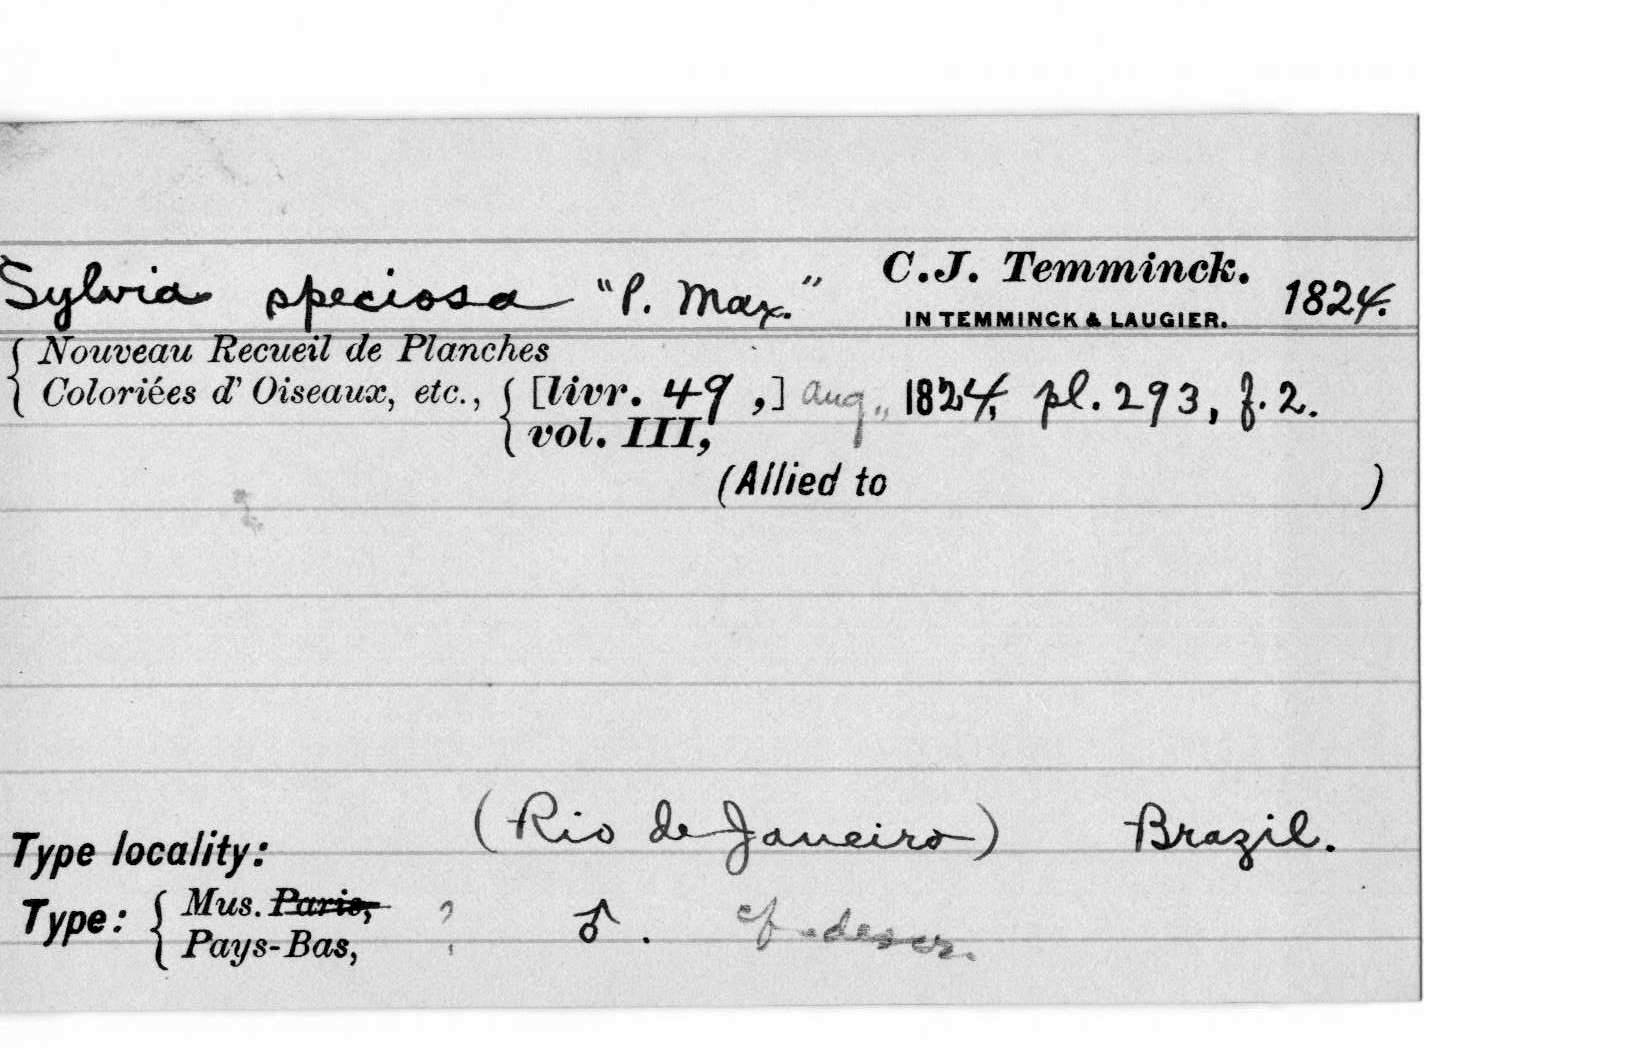 Sylvia speciosa "P. Max." C.J. Temminck. 1824.
IN TEMMINCK & LAUGIER.
Nouveau Recueil de Planches
Coloriées d' Oiseaux, etc., [livr. 49,] Aug., 1824, pl. 293, f. 2.
vol. III,
(Allied to )
Type locality: (Rio de Janeiro) Brazil.
Type: Mus. Paris, ? ♂. cf. descr.
Pays-Bas,